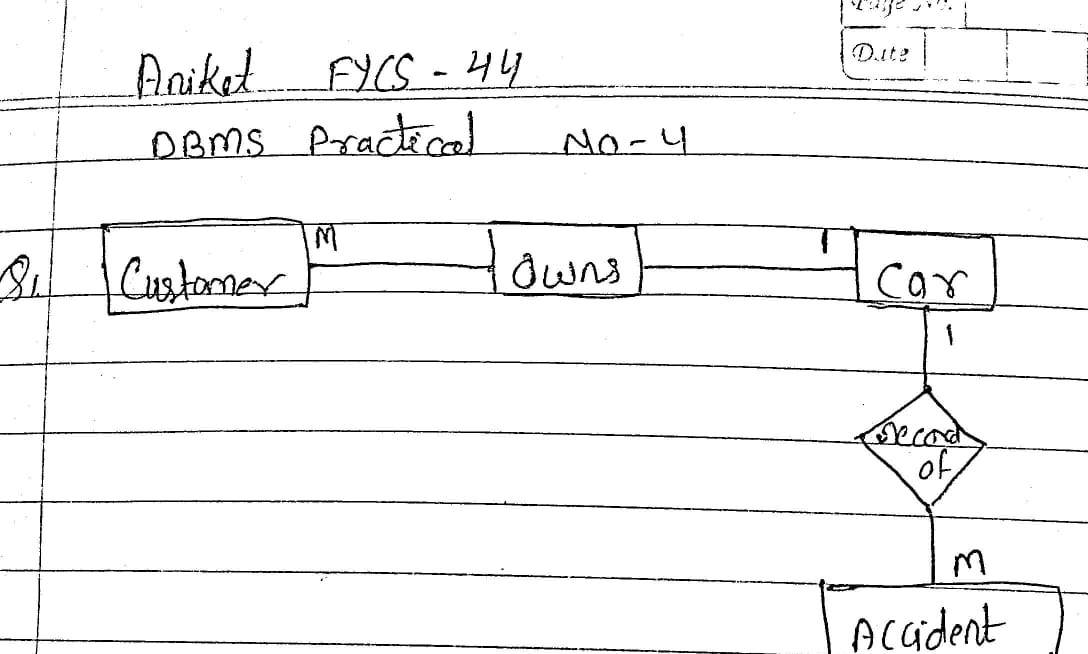 Page No.
Date
Aniket FYCS - 44
DBMS Practical NO - 4
Q1.
Customer
M
Owns
1
Car
1
Record
of
M
Accident